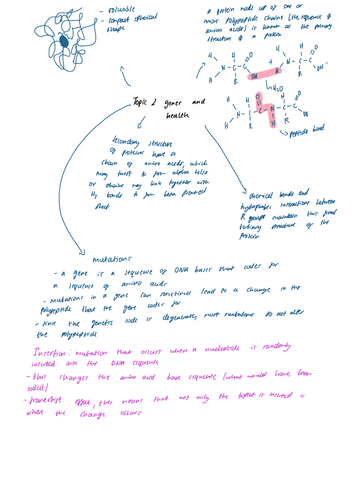 - soluble
- compact spherical
shape
A protein made up of one or
more polypeptide chains (the sequence of
amino acids) is known as the primary
structure of a protein
H H O H H O
N - C - C + N - C - C
H R OH H R OH
H₂O
peptide bond
Topic 2 genes and
health
Secondary structure
of proteins have a
chain of amino acids, which
may twist to form alpha helix
Or chains may link together with
H₂ bonds to form beta pleated
sheet
chemical bonds and
hydrophobic interactions between
R groups maintain this final
tertiary structure of the
protein
mutations
- a gene is a sequence of DNA bases that codes for
a sequence of amino acids
- mutations in a gene can sometimes lead to a change in the
polypeptide that the gene codes for
- Since the genetic code is degenerate, most mutations do not alter
the polypeptide
Insertion: mutation that occurs when a nucleotide is randomly
inserted into the DNA sequence
- this changes the amino acid base sequence (what would have been
coded)
- effect, this means that not only the triplet is inserted is
where the change occurs